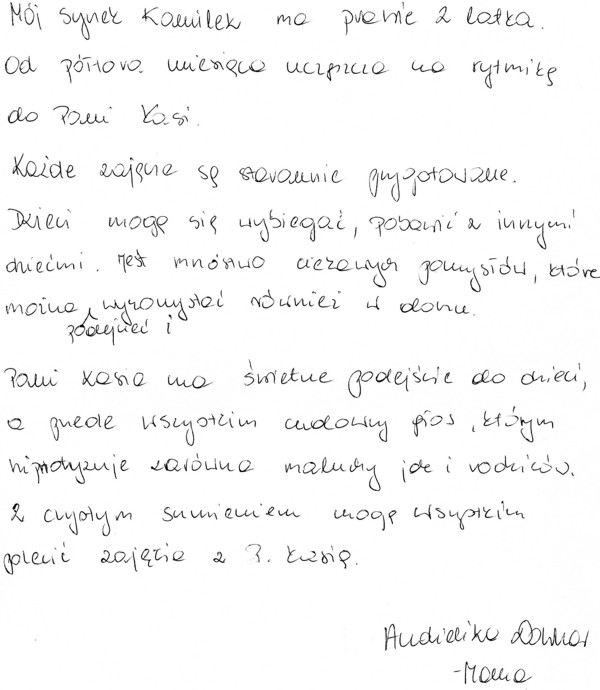 Mój synek Kamilek ma prawie 2 latka.
Od półtora miesiąca uczęszcza na rytmikę
do Pani Kasi.
Każde zajęcia są starannie przygotowane.
Dzieci mogą się wybiegać, pobawić z innymi
dziećmi. Jest mnóstwo ciekawych pomysłów, które
można wykorzystać również w domu.
podejrzeć i
Pani Kasia ma świetne podejście do dzieci,
a przede wszystkim cudowny głos, którym
hipnotyzuje zarówno maluchy jak i rodziców.
Z czystym sumieniem mogę wszystkim
polecić zajęcia z P. Kasią.
-Mama